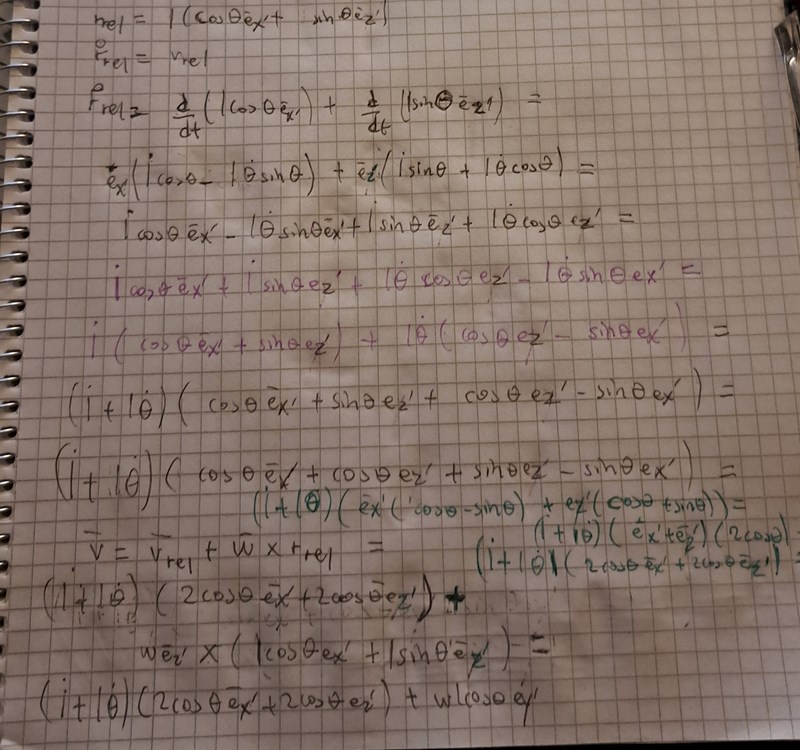 rrel = l(cosθ ēx' + sinθ ēz')
r̊rel = vrel
r̊rel = d/dt (l cosθ ēx') + d/dt (l sinθ ēz') =
ēx'(l̇ cosθ - lθ̇ sinθ) + ēz'(l̇ sinθ + lθ̇ cosθ) =
l̇ cosθ ēx' - lθ̇ sinθ ēx' + l̇ sinθ ēz' + lθ̇ cosθ ez' =
l̇ cosθ ēx' + l̇ sinθ ez' + lθ̇ cosθ ez' - lθ̇ sinθ ex' =
l̇ (cosθ ēx' + sinθ ez') + lθ̇ (cosθ ez' - sinθ ex') =
(l̇ + lθ̇)(cosθ ēx' + sinθ ez' + cosθ ez' - sinθ ex') =
(l̇ + lθ̇)(cosθ ēx' + cosθ ez' + sinθ ez' - sinθ ex') =
(l̇ + lθ̇)(ēx'(cosθ - sinθ) + ez'(cosθ + sinθ)) =
(l̇ + lθ̇)(ēx' + ēz')(2cosθ) =
v̄ = v̄rel + w̄ × rrel =
(l̇ + lθ̇)(2cosθ ēx' + 2cosθ ēz') =
(l̇ + lθ̇)(2cosθ ēx' + 2cosθ ēz') +
w ēz' × (l cosθ ex' + l sinθ ēz') =
(l̇ + lθ̇)(2cosθ ēx' + 2cosθ ez') + wl cosθ ēy'